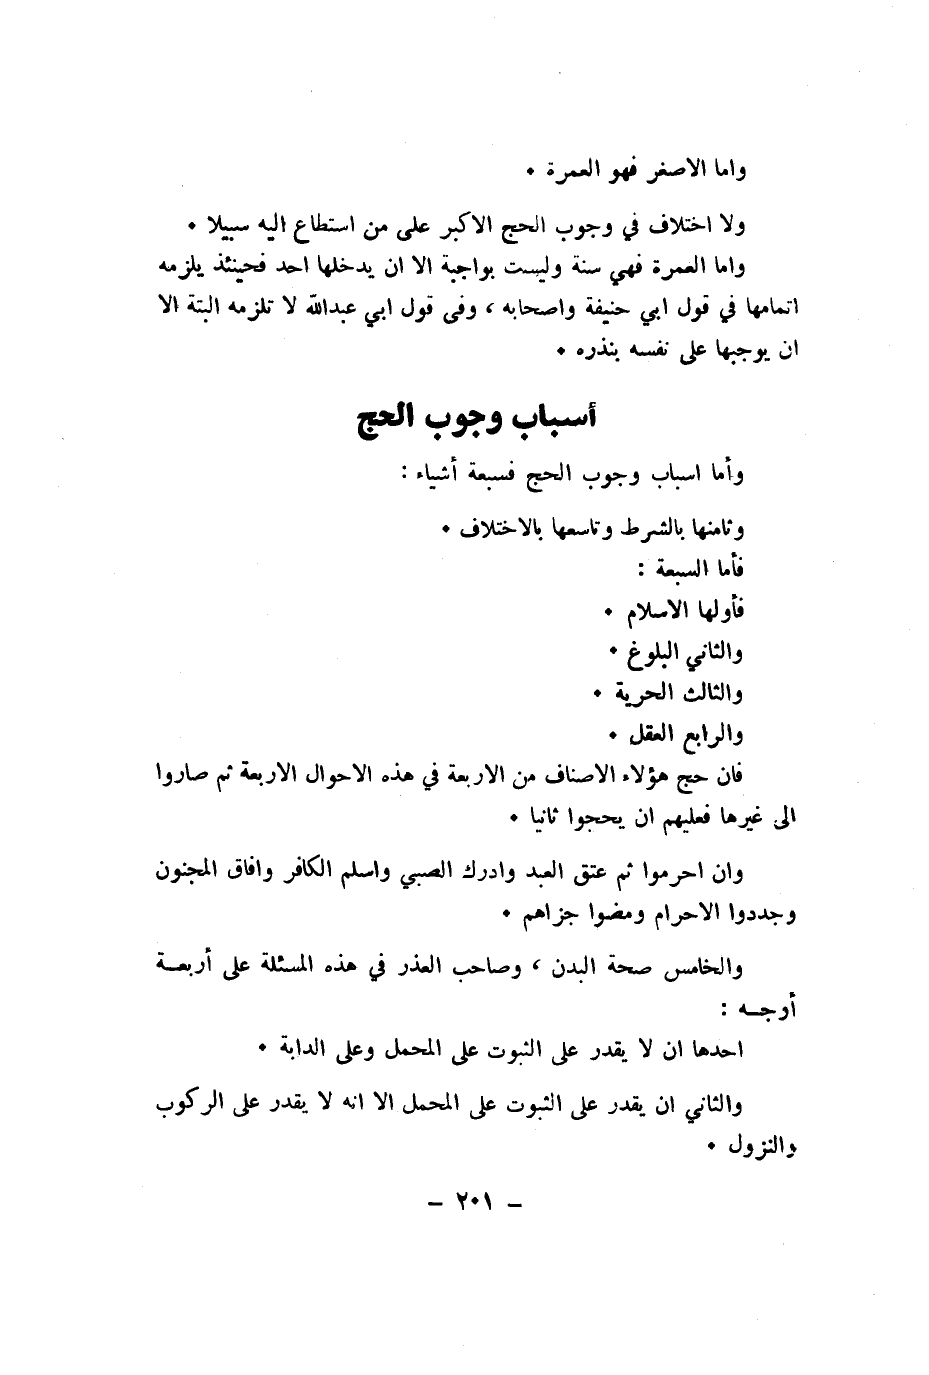 واما الاصغر فهو العمرة ٠
ولا اختلاف في وجوب الحج الاكبر على من استطاع اليه سبيلا ٠
واما العمرة فهي سنة وليست بواجبة الا ان يدخلها احد فحينئذ يلزمه
اتمامها في قول ابي حنيفة واصحابه ، وفى قول ابي عبدالله لا تلزمه البتة الا
ان يوجبها على نفسه بنذره ٠
أسباب وجوب الحج
وأما اسباب وجوب الحج فسبعة أشياء :
وثامنها بالشرط وتاسعها بالاختلاف ٠
فأما السبعة :
فأولها الاسلام ٠
والثاني البلوغ ٠
والثالث الحرية ٠
والرابع العقل ٠
فان حج هؤلاء الاصناف من الاربعة في هذه الاحوال الاربعة ثم صاروا
الى غيرها فعليهم ان يحجوا ثانيا ٠
وان احرموا ثم عتق العبد وادرك الصبي واسلم الكافر وافاق المجنون
وجددوا الاحرام ومضوا جزاهم ٠
والخامس صحة البدن ، وصاحب العذر في هذه المسئلة على أربعــة
أوجــه :
احدها ان لا يقدر على الثبوت على المحمل وعلى الدابة ٠
والثاني ان يقدر على الثبوت على المحمل الا انه لا يقدر على الركوب
والنزول ٠
– ٢٠١ –